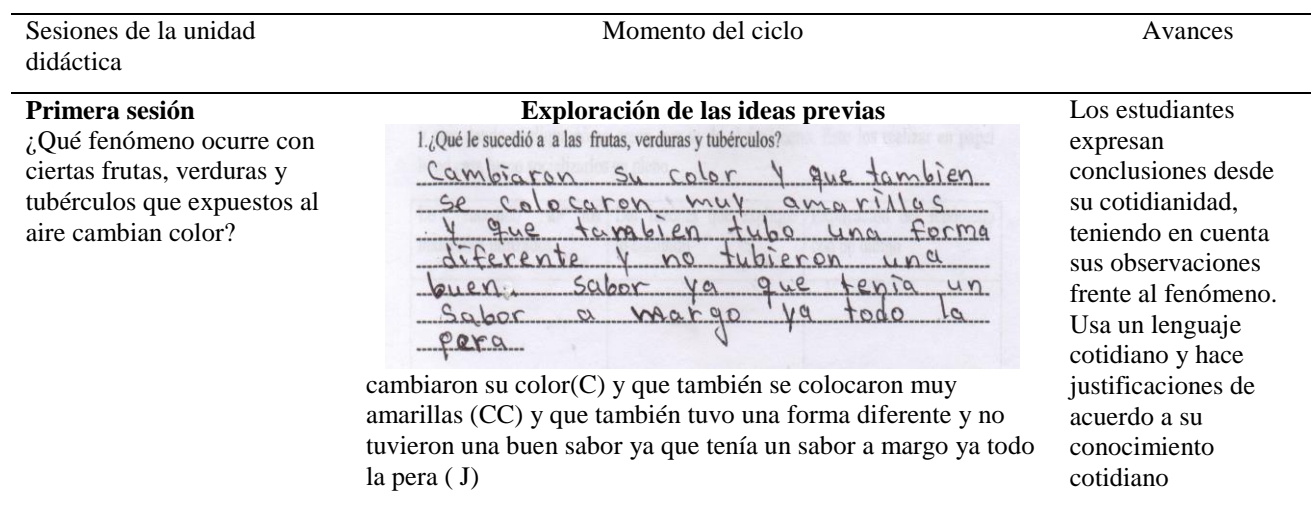 Sesiones de la unidad
didáctica
Momento del ciclo
Avances
Primera sesión
¿Qué fenómeno ocurre con
ciertas frutas, verduras y
tubérculos que expuestos al
aire cambian color?
Exploración de las ideas previas
1.¿Qué le sucedió a a las frutas, verduras y tubérculos?
Cambiaron su color y que tambien
se colocaron muy amarillas
y que tambien tubo una forma
diferente y no tubieron una
buen sabor ya que tenía un
sabor a margo ya todo la
pera
cambiaron su color(C) y que también se colocaron muy
amarillas (CC) y que también tuvo una forma diferente y no
tuvieron una buen sabor ya que tenía un sabor a margo ya todo
la pera ( J)
Los estudiantes
expresan
conclusiones desde
su cotidianidad,
teniendo en cuenta
sus observaciones
frente al fenómeno.
Usa un lenguaje
cotidiano y hace
justificaciones de
acuerdo a su
conocimiento
cotidiano